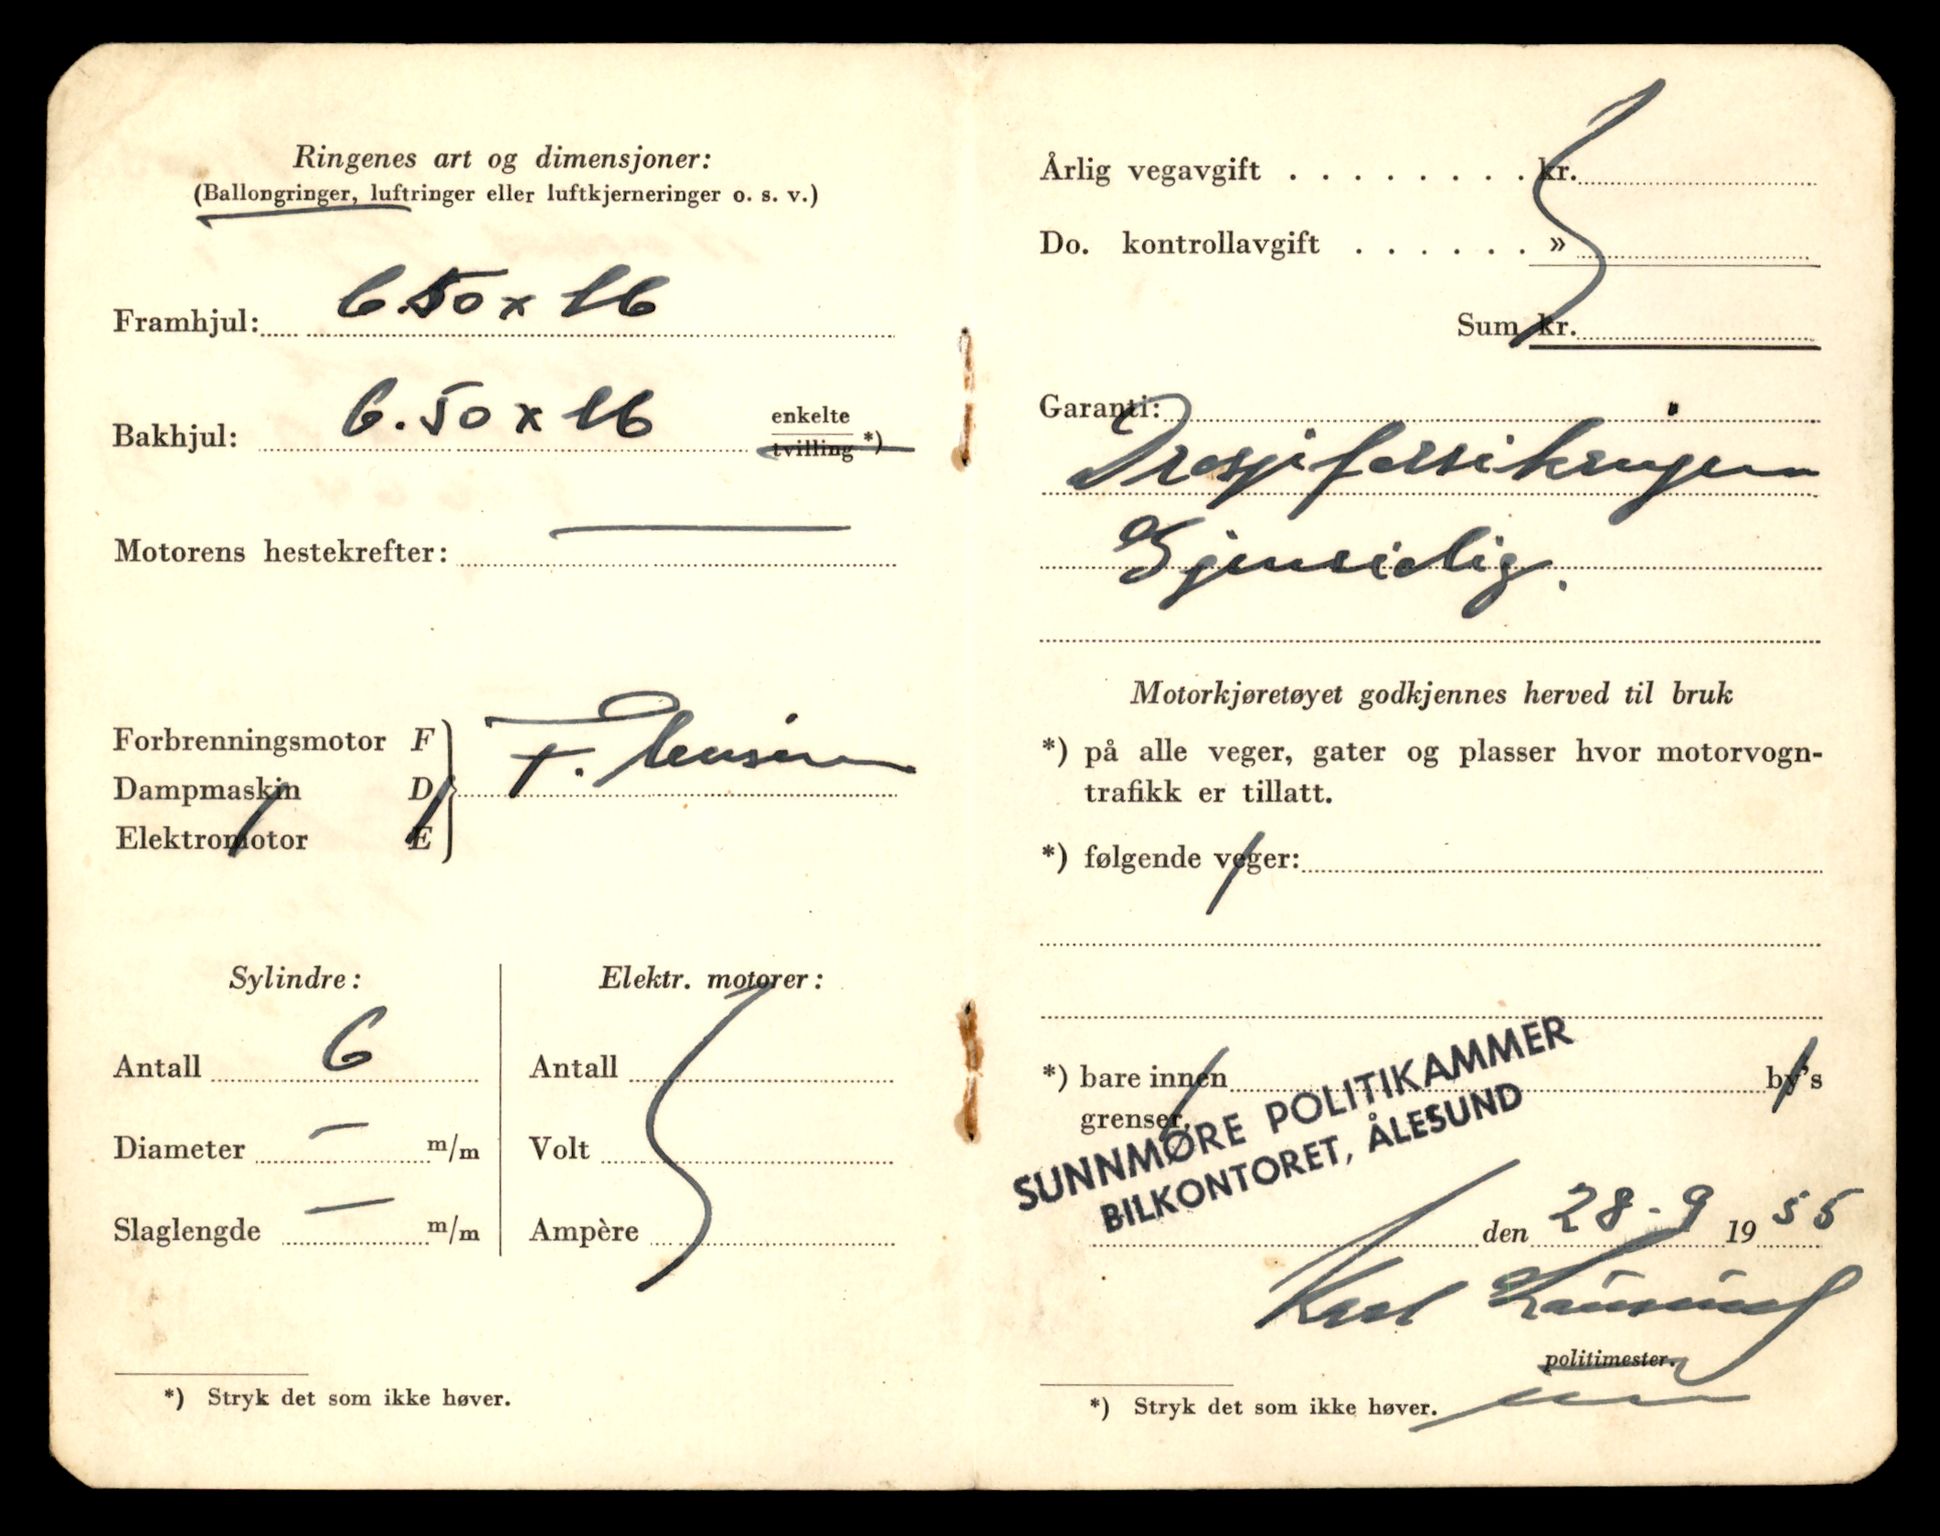 Ringenes art og dimensjoner:
(Ballongringer, luftringer eller luftkjerneringer o. s. v.)
Framhjul: 6.50 x 16
Bakhjul: 6.50 x 16 enkelte
tvilling *)
Motorens hestekrefter: —
Forbrenningsmotor F
Dampmaskin D
Elektromotor E
F. Bensin
Sylindre:
Antall 6
Diameter — m/m
Slaglengde — m/m
Elektr. motorer:
Antall
Volt
Ampère
*) Stryk det som ikke høver.
Årlig vegavgift . . . . . . . . kr.
Do. kontrollavgift . . . . . . »
Sum kr.
Garanti:
Drosjeforsikringen
Gjensidig.
Motorkjøretøyet godkjennes herved til bruk
*) på alle veger, gater og plasser hvor motorvogn-
trafikk er tillatt.
*) følgende veger:
*) bare innen by's
grenser.
SUNNMØRE POLITIKAMMER
BILKONTORET, ÅLESUND
den 28-9 1955
Karl
politimester.
*) Stryk det som ikke høver.